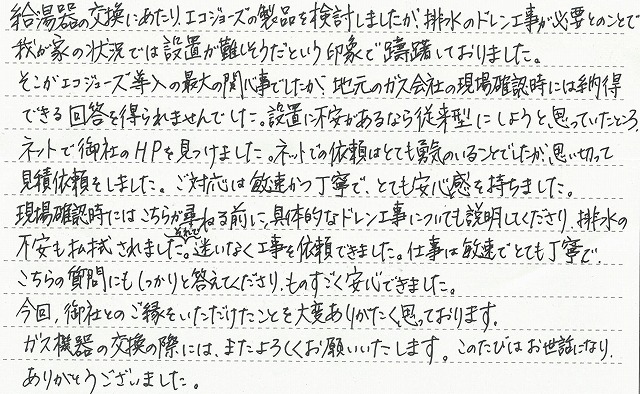 給湯器の交換にあたり、エコジョーズの製品を検討しましたが、排水のドレン工事が必要とのことで
我が家の状況では設置が難しそうだという印象で躊躇しておりました。
そこがエコジョーズ導入の最大の関心事でしたが、地元のガス会社の現場確認時には納得
できる回答を得られませんでした。設置に不安があるなら従来型にしようと思っていたところ
ネットで御社のHPを見つけました。ネットでの依頼はとても勇気のいることでしたが、思い切って
見積依頼をしました。ご対応は敏速かつ丁寧で、とても安心感を持ちました。
現場確認時にはこちらが尋ねる前に、具体的なドレン工事についても説明してくださり、排水の
不安も払拭されました。それで迷いなく工事を依頼できました。仕事は敏速でとても丁寧で、
こちらの質問にもしっかりと答えてくださり、ものすごく安心できました。
今回、御社とのご縁をいただけたことを大変ありがたく思っております。
ガス機器の交換の際には、またよろしくお願いいたします。このたびはお世話になり、
ありがとうございました。